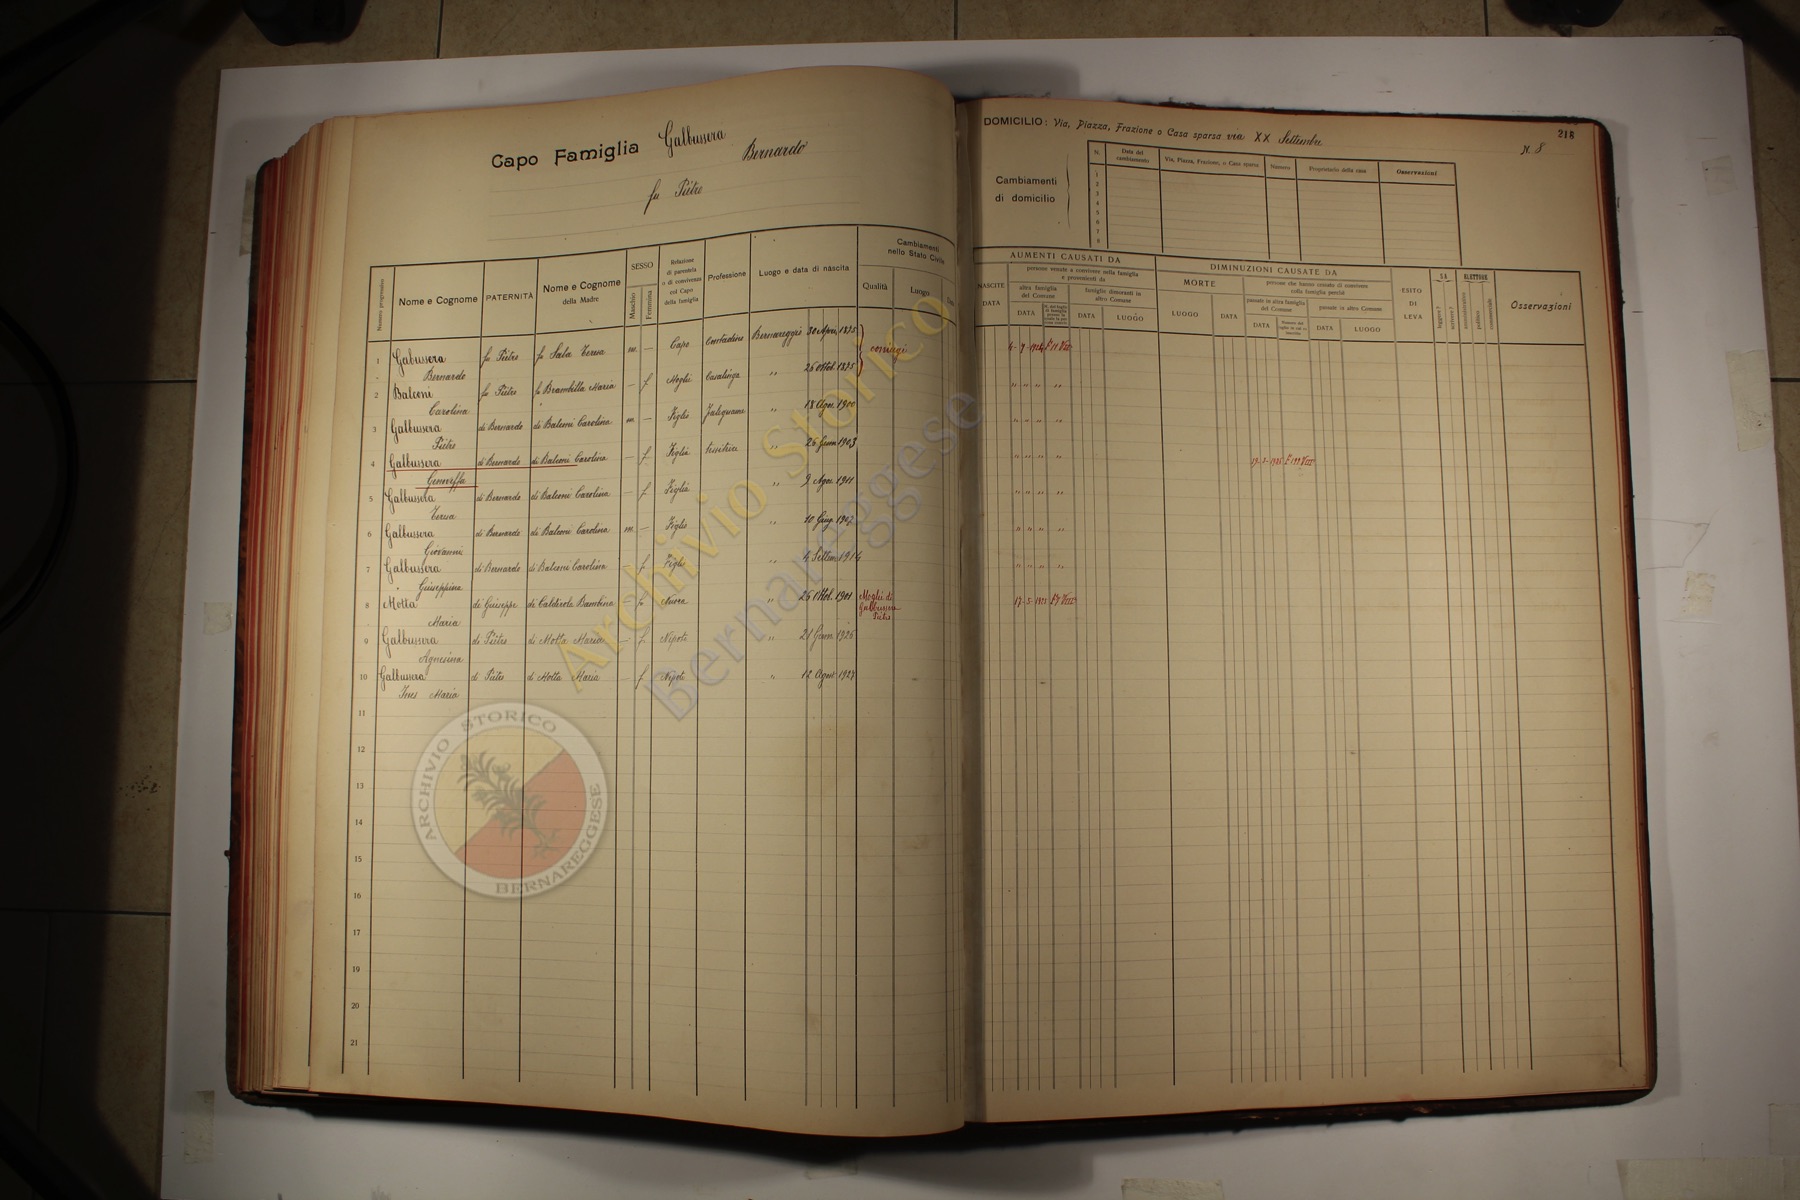 Capo Famiglia Galbussera
Bernardo
fu Pietro
Numero progressivo
Nome e Cognome
PATERNITÀ
Nome e Cognome della Madre
SESSO
Maschio
Femmina
Relazione di parentela o di convivenza col Capo della famiglia
Professione
Luogo e data di nascita
Cambiamenti nello Stato Civile
Qualità
Luogo
1 Gabussera fu Pietro fu Sala Teresa m. — Capo Contadino Bernareggio 30 Apri. 1875 coniugi
Bernardo
2 Balconi fu Pietro fu Brambilla Maria — f Moglie Casalinga „ 26 Ottob. 1875
Carolina
3 Galbussera di Bernardo di Balconi Carolina m — Figlio Falegname „ 18 Agos. 1900
Pietro
4 Galbussera di Bernardo di Balconi Carolina — f Figlia tessitrice „ 26 Genn. 1903
Genoveffa
5 Galbussera di Bernardo di Balconi Carolina — f Figlia „ 9 Agos. 1911
Teresa
6 Galbussera di Bernardo di Balconi Carolina m. — Figlio „ 10 Giug. 1907
Giovanni
7 Galbussera di Bernardo di Balconi Carolina — f Figlia „ 4 Settem. 1914
Giuseppina
8 Motta di Giuseppe di Calderola Bambina — f Nuora „ 26 Ottob. 1901 Moglie di
Maria Galbussera
Pietro
9 Galbussera di Pietro di Motta Maria — f Nipote „ 21 Genn. 1926
Agnesina
10 Galbussera di Pietro di Motta Maria — f Nipote „ 12 Agost. 1927
Ines Maria
11
12
13
14
15
16
17
18
19
20
21
DOMICILIO: Via, Piazza, Frazione o Casa sparsa via XX Settembre
N. 8
216
Cambiamenti di domicilio
N.
Data del cambiamento
Via, Piazza, Frazione, o Casa sparsa
Numero
Proprietario della casa
Osservazioni
1
2
3
4
5
6
7
8
AUMENTI CAUSATI DA
NASCITE
DATA
persone venute a convivere nella famiglia e provenienti da
altra famiglia del Comune
DATA
famiglie dimoranti in altro Comune
DATA
LUOGO
DIMINUZIONI CAUSATE DA
MORTE
LUOGO
DATA
persone che hanno cessato di convivere colla famiglia perchè
passate in altra famiglia del Comune
DATA
passate in altro Comune
DATA
LUOGO
ESITO DI LEVA
SA
leggere?
scrivere?
ELETTORE
amministrativo
politico
commerciale
Osservazioni
17-5-1925
ARCHIVIO STORICO
BERNAREGGESE
Archivio Storico
Bernareggese